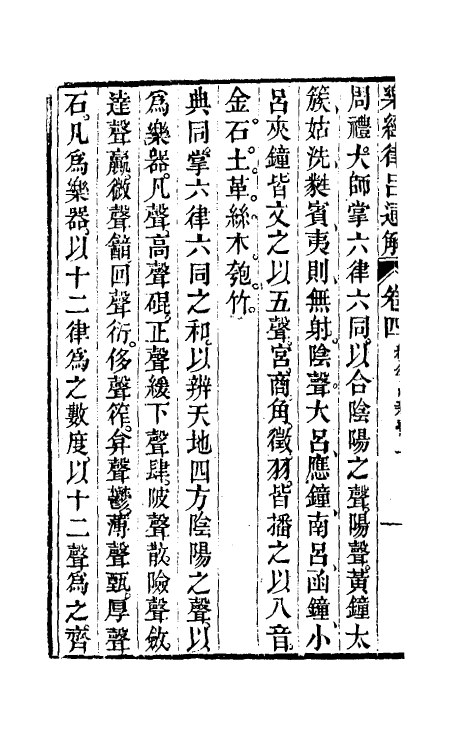 樂經律呂通解 卷四
周禮大師掌六律六同以合陰陽之聲陽聲黃鐘太
簇姑洗蕤賓夷則無射陰聲大呂應鐘南呂函鐘小
呂夾鐘皆文之以五聲宮商角徵羽皆播之以八音
金石土革絲木匏竹
典同掌六律六同之和以辨天地四方陰陽之聲以
爲樂器凡聲高聲䃂正聲緩下聲肆陂聲散險聲斂
達聲贏微聲韽回聲衍侈聲筰弇聲鬱薄聲甄厚聲
石凡爲樂器以十二律爲之數度以十二聲爲之齊